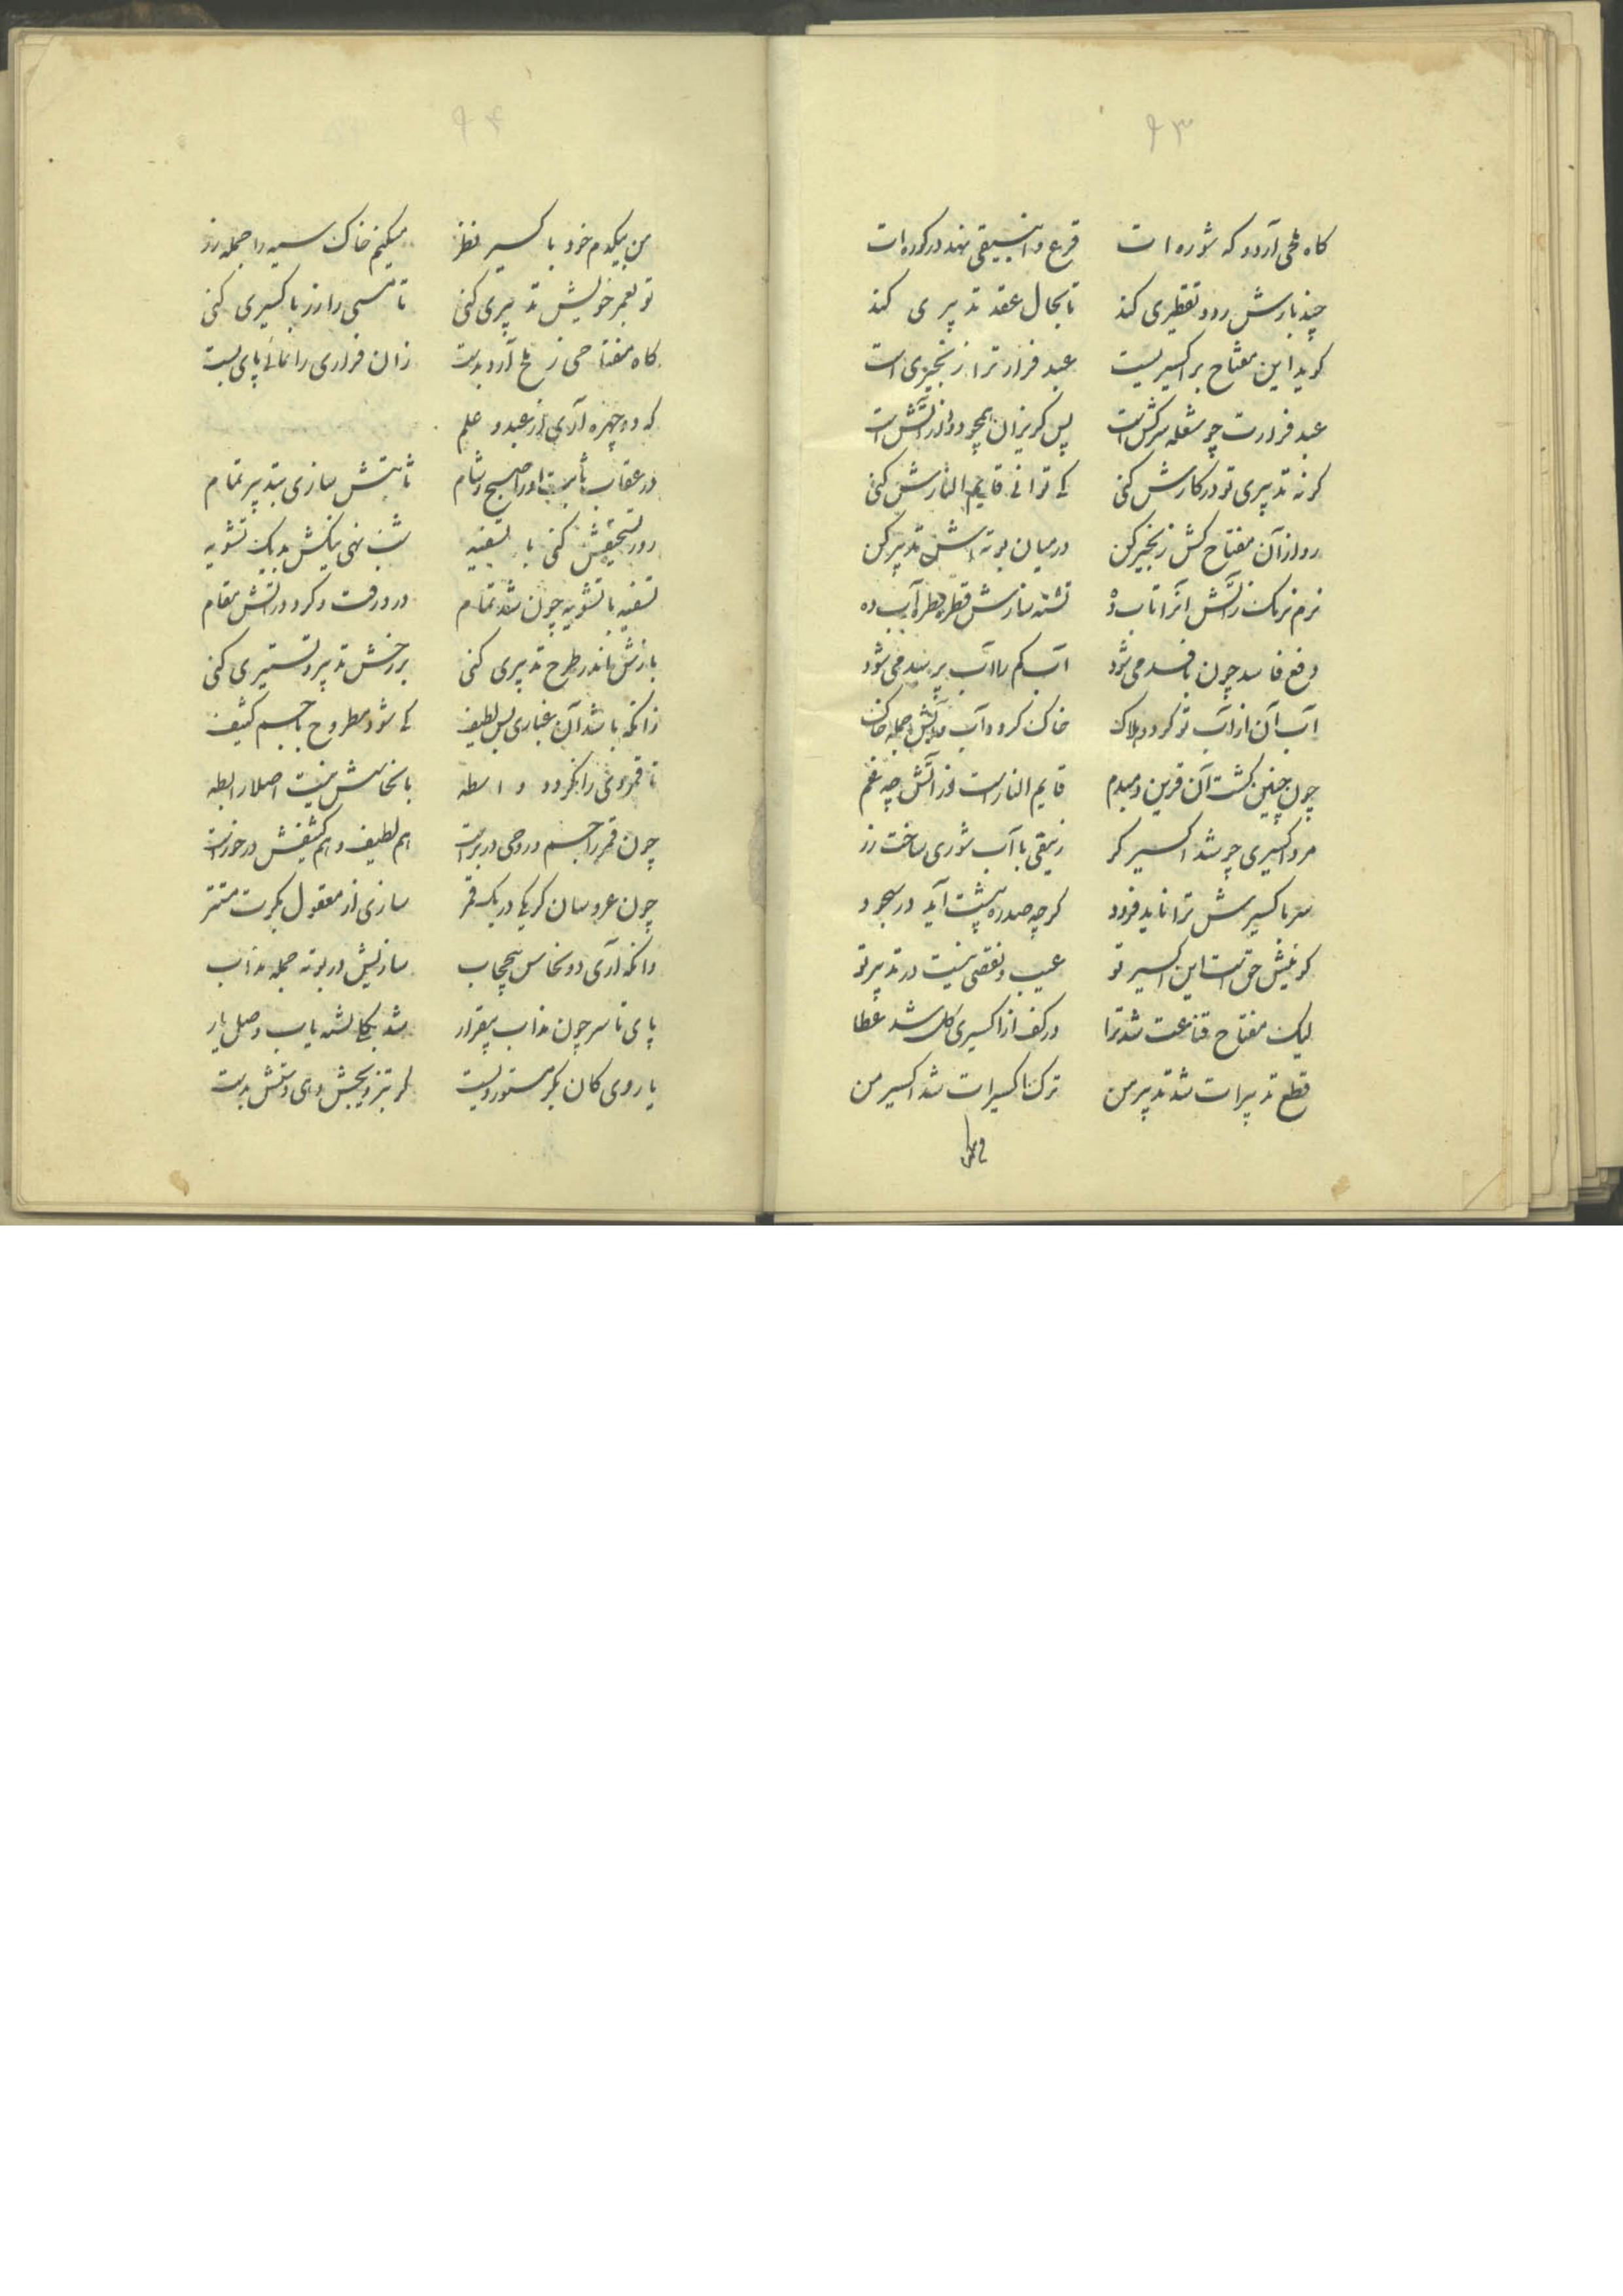 ۹۳
کاه ملحی آرد و که شوره ات قرع و انبیقی نهد در کوره ات
چند بارش رود تقطیری کند تا بحال عقد تدبیری کند
کوید این مفتاح بر اکسیر نیست عبد فرار ترا زنجیری است
عبد فرارت چو شعله سرکش است پس کریزان همچو دود از آتش است
کر نه تدبیری تو در کارش کنی کی توانی قایم النارش کنی
رو از آن مفتاح کش زنجیر کن در میان بوته اش تدبیر کن
نرم نرمک ز آتش آنرا تاب ده تشنه سازش قطره قطره آب ده
دفع فاسد چون بافسد می شود آب کم را آب بر سد می شود
آب آن از آب تو کردد هلاک خاک کردد آب و آتش جمله خاک
چون چنین کشت آن قرین و همدم قایم النار است از آتش چه غم
مرد اکسیری چو شد اکسیر کر زیبقی با آب شوری ساخت زر
سر باکسیرش ترا ناید فرود کرچه صد ره پیشت آید در سجود
کویدش حق است این اکسیر تو عیب و نقصی نیست در تدبیر تو
لیک مفتاح قناعت شد ترا در کف از اکسیری کل شد عطا
قطع تدبیرات شد تدبیر من ترک اکسیرات شد اکسیر من
۹۴
من بیکدم خود با کسیر نظر میکنم خاک سیه را جمله زر
تو بعمر خویش تدبیری کنی تا مسی را زر باکسیری کنی
کاه مفتاحی ز ملح آرد بدست زان فراری را نمائی پای بست
که دو چهره آری از عبد و علم
در عقاب ثابت او را صبح و شام ثابتش سازی بتدبیر تمام
روز تسحیقش کنی با تسقیه شب نهی نیکش بدیک تشویه
تسقیه با تشویه چون شد تمام در و رفت و کرد در آتش مقام
بازش باندر طرح تدبیری کنی بر رخش تدبیر و تستیری کنی
زانکه باشد آن غباری بس لطیف کی شود مطروح با جسم کثیف
تا قمر وی را نکردد واسطه با نحاسش نیست اصلا رابطه
چون قمر را جسم و روحی در بر است هم لطیف و هم کثیفش در خور است
چون عروسان کر یکی در یک قمر سازی از معقول بکرت مستتر
وانکه آری دو نحاس بیحجاب سازیش در بوته جمله مذاب
پای تا سر چون مذاب بیقرار شد یکانشه یاب وصل یار
یا روی کان بکر مستور ویست کر بتزویجش دهی دستش بدست